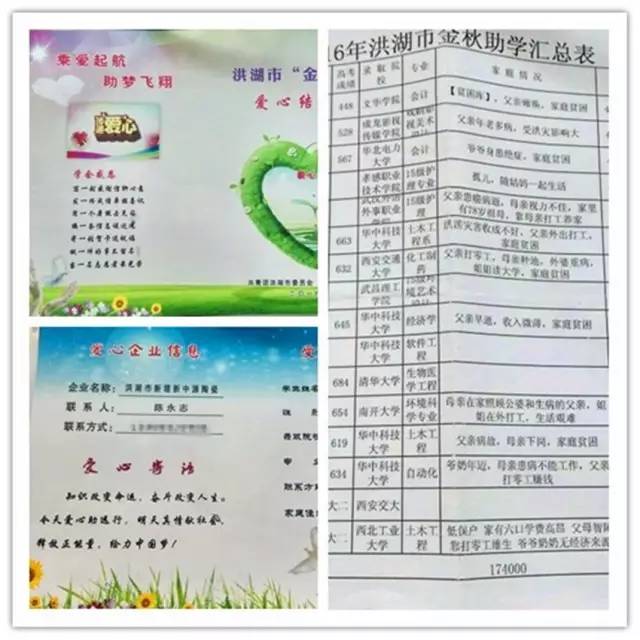 乘爱起航
助梦飞翔
洪湖市“金
爱心结
爱心
学会感恩
共青团洪湖市委员会
爱心企业信息
企业名称：洪湖市新堤新中源陶瓷
联系人：陈永志
联系方式：
爱心寄语
知识改变命运，奋斗改变人生。
今天爱心助远行，明天真情献社会，
释放正能量，给力中国梦！
学生姓名
联系方
家庭住
16年洪湖市金秋助学汇总表
高考成绩 录取院校 专业 家庭情况
448 文华学院 会计 【贫困库】，父亲瘫痪，家庭贫困
528 成见影视传媒学院 父亲年老多病，受洪灾影响大
567 华北电力大学 会计 爷爷身患绝症，家庭贫困
孝感职业技术学院 15级护理专业 孤儿，随姑妈一起生活
外事职业学院 15级护理 父亲患癌病逝，母亲视力不佳，家里有78岁祖母，靠母亲打工养家
663 华中科技大学 土木工程系 洪涝灾害收成不好，父亲外出打工，家庭贫困
632 西安交通大学 化工制药 父亲打零工，母亲种地，外婆重病，姐姐读大学，家庭贫困
武昌理工学院 15级环境艺术设计
645 华中科技大学 经济学 父亲早逝，收入微薄，家庭贫困
华中科技大学 软件工程
684 清华大学 生物医学工程
654 南开大学 环境科学专业 母亲在家照顾公婆和生病的父亲，姐姐在外打工，生活艰难
619 华中科技大学 土木工程 父亲病故，母亲下岗，家庭贫困
634 华中科技大学 自动化 爷奶年迈，母亲患病不能工作，父亲打零工赚钱
大二 西安交大
大二 西北工业大学 土木工程 低保户 家有六口学费高昂 父母智障 靠打零工维生 爷爷奶奶无经济来源
174000